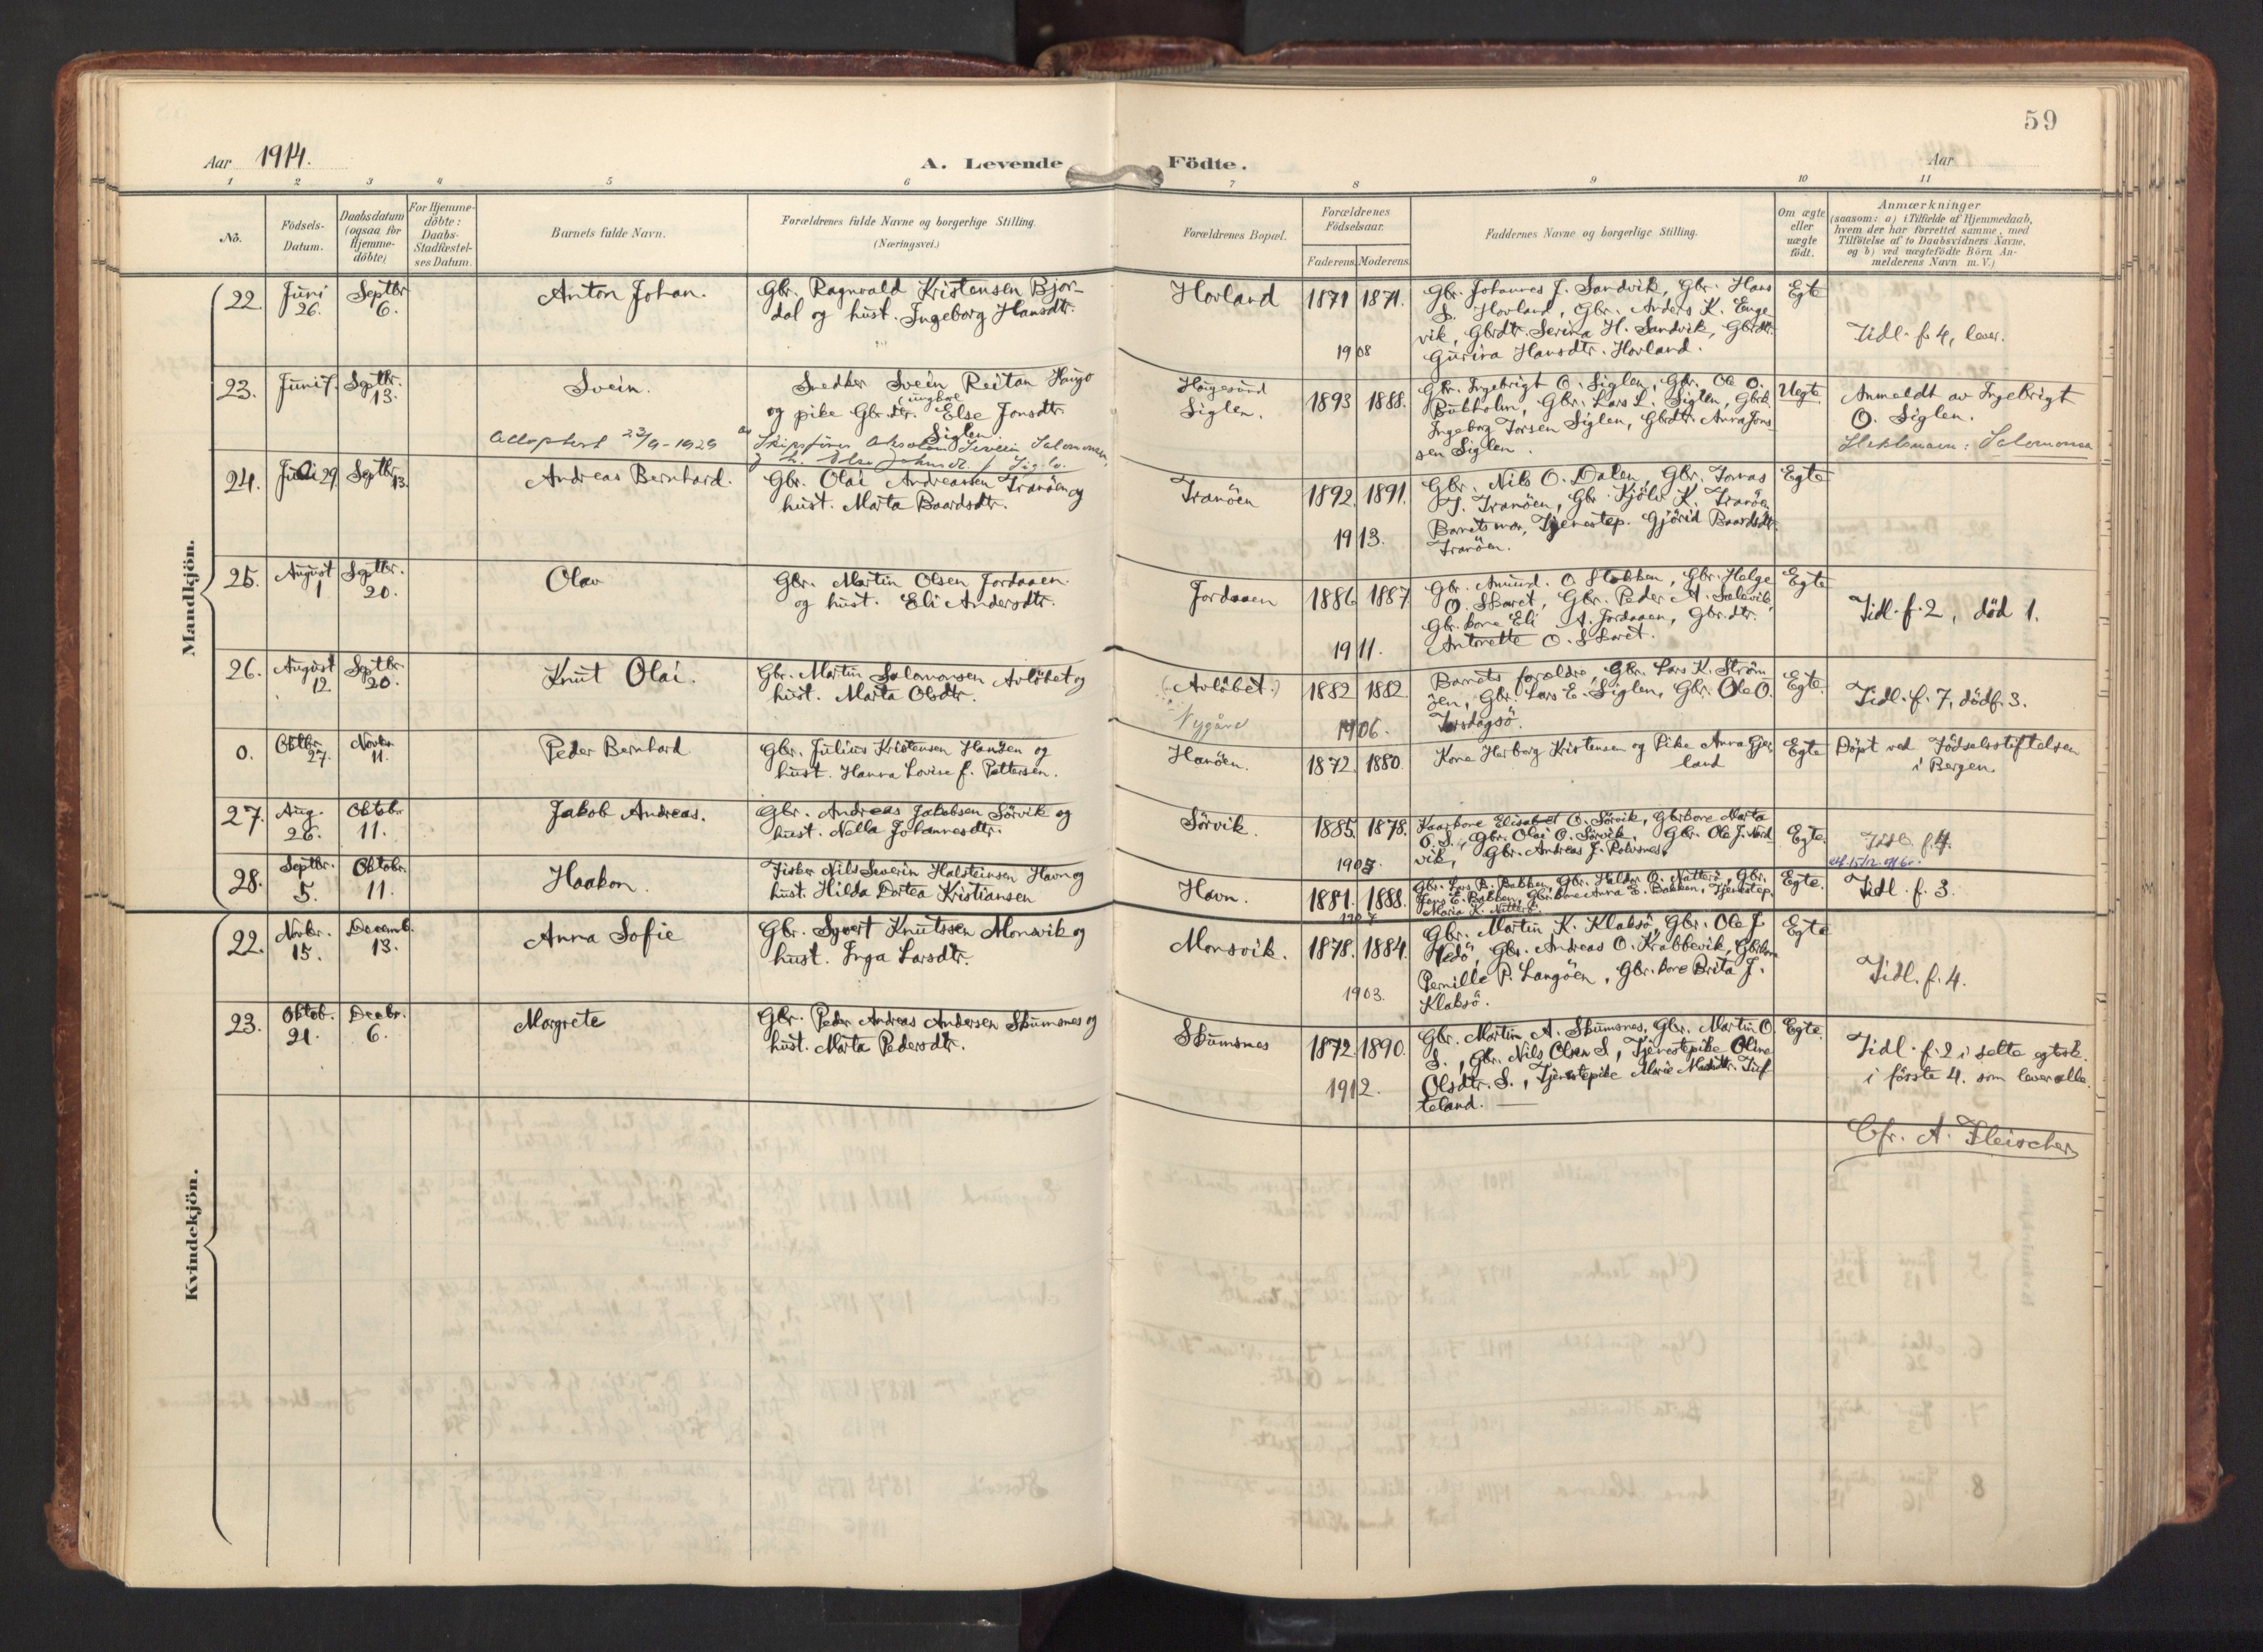 59
Aar 1914.
A. Levende Födte.
Aar
1 2 3 4 5 6 7 8 9 10 11
No.
Födsels-
Datum.
Daabsdatum
(ogsaa for
Hjemme-
döbte)
For Hjemme-
döbte:
Daabs-
Stadfæstel-
ses Datum.
Barnets fulde Navn.
Forældrenes fulde Navne og borgerlige Stilling.
(Næringsvei.)
Forældrenes Bopæl.
Forældrenes
Födselsaar.
Faderens. Moderens.
Faddernes Navne og borgerlige Stilling.
Om ægte
eller
uægte
födt.
Anmærkninger
(saasom: a) i Tilfælde af Hjemmedaab,
hvem der har forrettet samme, med
Tilföielse af to Daabsvidners Navne,
og b) ved uægtefödte Börn An-
melderens Navn m. V.)
Mandkjön.
22. Juni
26.
Septbr
6.
Anton Johan.
Gbr. Ragnvald Kristensen Bjor-
dal og hust. Ingeborg Hansdtr.
Hovland
1871 1871.
1908
Gbr. Johannes J. Sandvik, Gbr. Hans
S. Hovland, Gbr. Anders K. Enge-
vik, Gbrdtr. Serina H. Sandvik, Gbrdtr.
Gurina Hansdtr. Hovland.
Egte
Tidl. f. 4, lever.
23. Juni 7. Septbr.
13.
Svein.
Snedker Svein Reitan Haugs
og pike Gbr.dtr. (ungkarl Else Jonsdtr.
Siglen.
Adoptert 23/9-1929 av Skipsfører Severin Salomonsen
Haugesund
Siglen.
1893 1888.
Gbr. Ingebrigt O. Siglen, Gbr. Ole O.
Bukholm, Gbr. Lars L. Siglen, Gbrk.
Ingeborg Torsen Siglen, Gbrdtr. Anna Jons-
sen Siglen.
Uegte
Anmeldt av Ingebrigt
O. Siglen.
Slektsnavn: Salomonsen
24. Juli 29 Septbr.
13.
Andreas Bernhard.
Gbr. Olai Andreassen Tranöen og
hust. Marta Baardsdtr.
Tranöen
1892. 1891.
1913.
Gbr. Nils O. Dalen, Gbr. Tomas
J. Tranöen, Gbr. Kjölv K. Tranöen
Barnets mor, Tjenestep. Gjörid Baardsdtr.
Tranöen.
Egte
25. August
1
Septbr.
20.
Olav
Gbr. Martin Olsen Jordaaen.
og hust. Eli Andersdtr.
Jordaaen
1886 1887.
1911.
Gbr. Amund. O Stokken, Gbr. Helge
O. Skaret, Gbr. Peder A. Salevik,
Gbr. kone Eli A. Jordaaen, Gbr.dtr.
Antonette O. Skaret.
Egte
Tidl. f. 2, död 1.
26. August
12
Septbr.
20.
Knut Olai.
Gbr. Martin Salomonsen Avlöbet og
hust. Marta Olsdtr.
(Avlöbet.)
Nygård
1882 1882
1906.
Barnets forældre, Gbr. Lars K. Ström-
öen, Gbr. Lars E. Siglen, Gbr. Ole O.
Torsdagsö.
Egte.
Tidl. f. 7, dödf. 3.
0. Oktbr.
27.
Novbr.
11.
Peder Bernhard
Gbr. Julius Kristensen Hanöen og
hust. Hanna Lovise f. Pettersen.
Hanöen.
1872. 1880.
Kone Herborg Kristensen og Pike Anna Gjer-
land
Egte
Döpt ved Födselsstiftelsen
i Bergen.
27. Aug.
26.
Oktobr.
11.
Jakob Andreas.
Gbr. Andreas Jakobsen Sörvik og
hust. Nella Johannesdtr.
Sörvik.
1885. 1878.
1907.
Kaarkone Elisabet O. Sörvik, Gbrkone Marta
O. S., Gbr. Olai O. Sörvik, Gbr. Ole J. Nord-
vik, Gbr. Andreas J.
Egte.
Tidl. f. 4.
28. Septbr.
5.
Oktobr.
11.
Haakon.
Fisker Nils Severin Halsteinsen Havn og
hust. Hilda Dortea Kristiansen
Havn.
1881. 1888.
1907
Gbr. Lars B. Bakken, Gbr. Haldor O. Natterö, Gbr.
Jens E. Bakken, Gbr.kone Anna E. Bakken, Tjenestep.
Maria K. Natterö.
Egte.
Tidl. f. 3.
Kvindekjön.
22. Novbr.
15.
Decemb.
13.
Anna Sofie
Gbr. Sjvert Knutssen Monsvik og
hust. Inga Larsdtr.
Monsvik.
1878. 1884.
1903.
Gbr. Martin K. Klaksö, Gbr. Ole J.
Hedö, Gbr. Andreas O. Krabbevik, Gbrkone
Pernille P. Langöen, Gbr. kone Brita J.
Klaksö.
Egte
Tidl. f. 4.
23. Oktob.
21.
Decbr.
6.
Margrete
Gbr. Peder Andreas Andersen Skumsnes og
hust. Marta Pedersdtr.
Skumsnes
1872. 1890.
1912.
Gbr. Martin A. Skumsnes, Gbr. Martin O.
S., Gbr. Nils Olsen S., Tjenestepike Oline
Olsdtr. S., Tjenestepike Marie Madsdtr. Tuf-
teland.
Egte.
Tidl. f. 2 i dette egtesk.
i förste 4. som lever alle.
Cfr. A. Fleischer